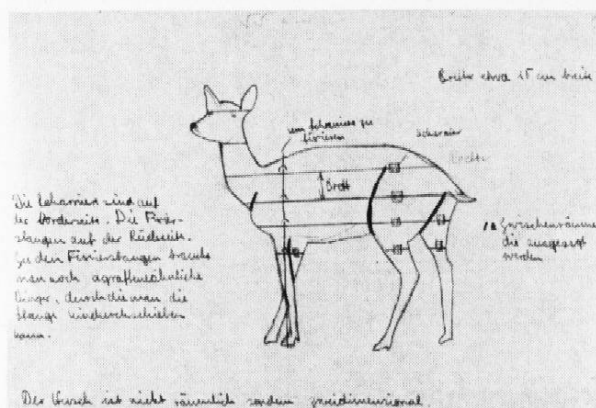 Bretter etwa 15 cm breit
um Scharnier zu
fixieren
Scharnier
Brett
Die Scharniere sind auf
der Vorderseite. Die Fixier-
stangen auf der Rückseite.
Zu den Fixierstangen braucht
man noch agraffenähnliche
Dinger, durch die man die
Stange hindurchschieben
kann.
Zwischenräume
die ausgesägt
werden
Der Hirsch ist nicht räumlich sondern zweidimensional.